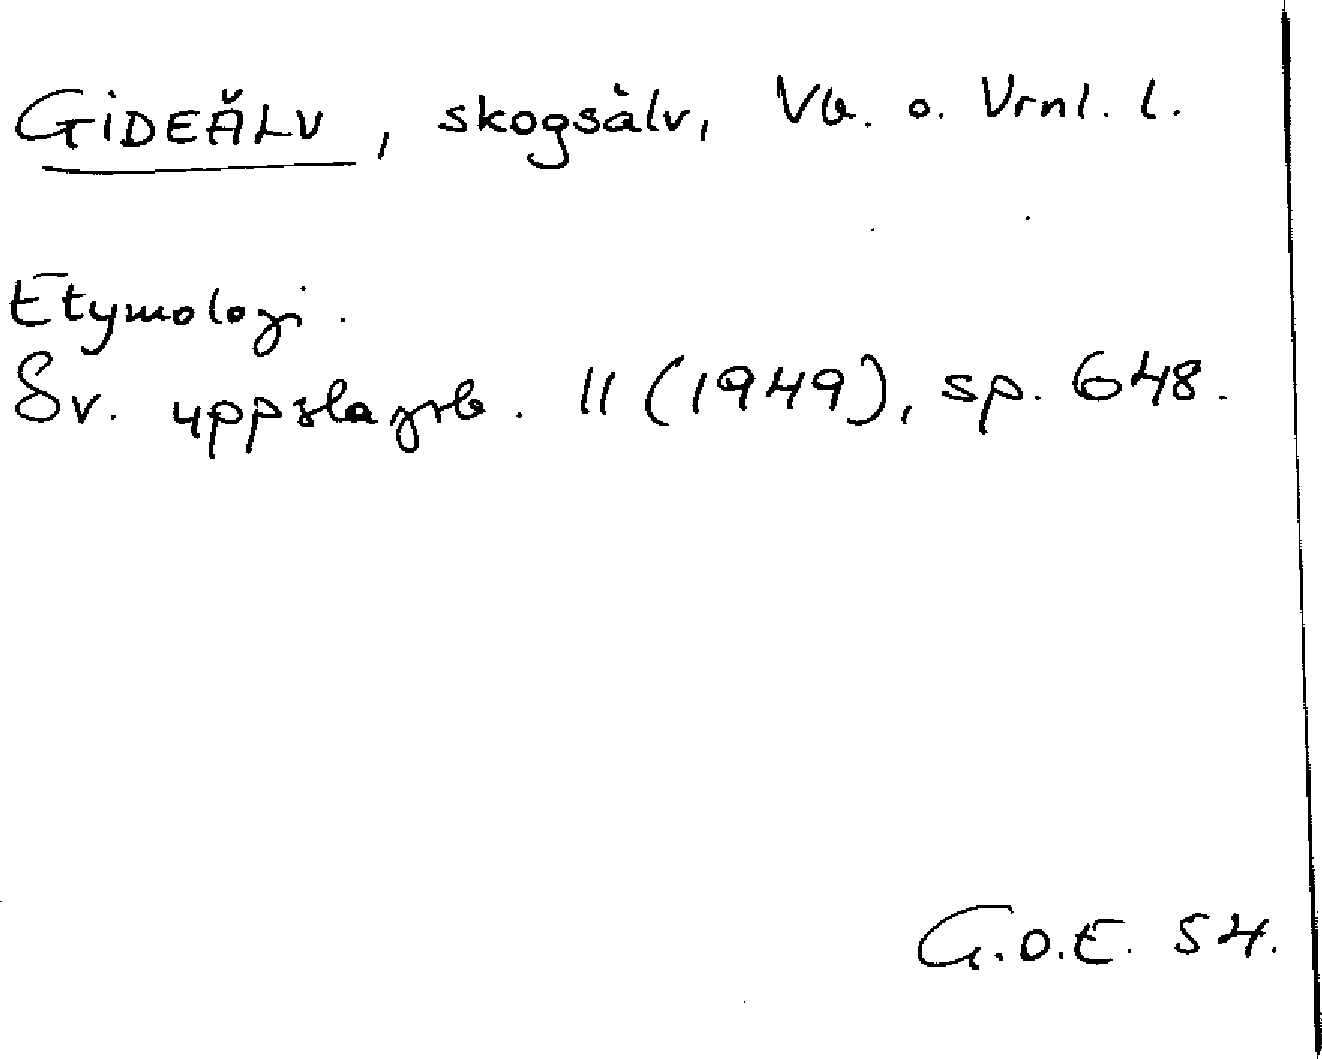 GIDEÄLV, skogsälv, Vb. o. Vrnl. l.
Etymologi.
Sv. uppslagsb. 11 (1949), sp. 648.
G.O.E. 54.